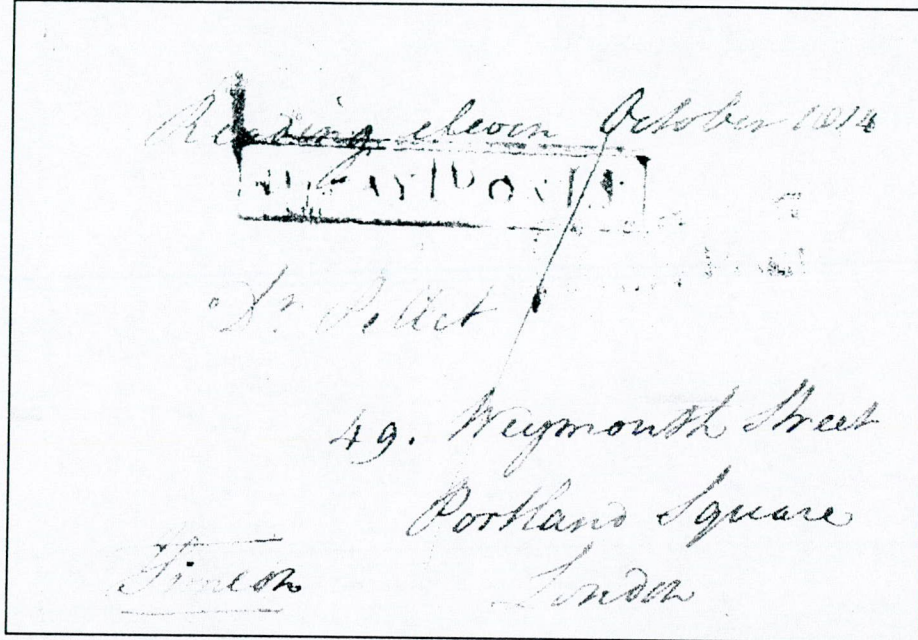 Reading eleven October 1814
Dr. Pellet
49. Weymouth Street
Portland Square
London
Simeon